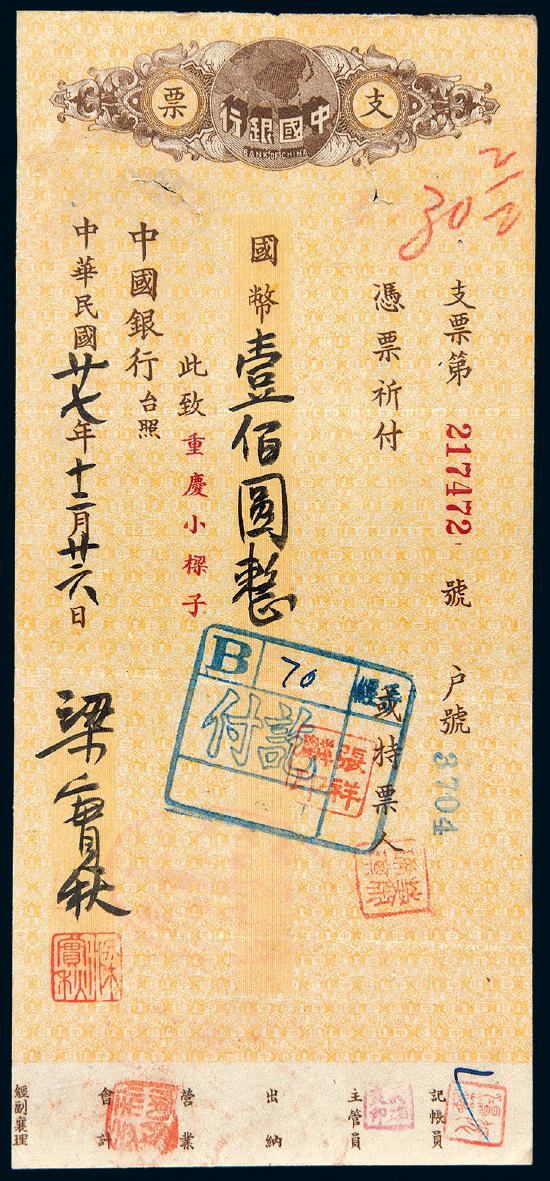 支票
中國銀行
BANK OF CHINA
30
支票第 217472 號 户號 2704
憑票祈付 或持票人
國幣壹佰圓整
此致重慶小樑子
中國銀行台照
中華民國廿七年十二月廿六日
梁實秋
梁實秋
B 70
付訖
張祥麟
記帳員
主管員
出納
營業
會計
經副襄理